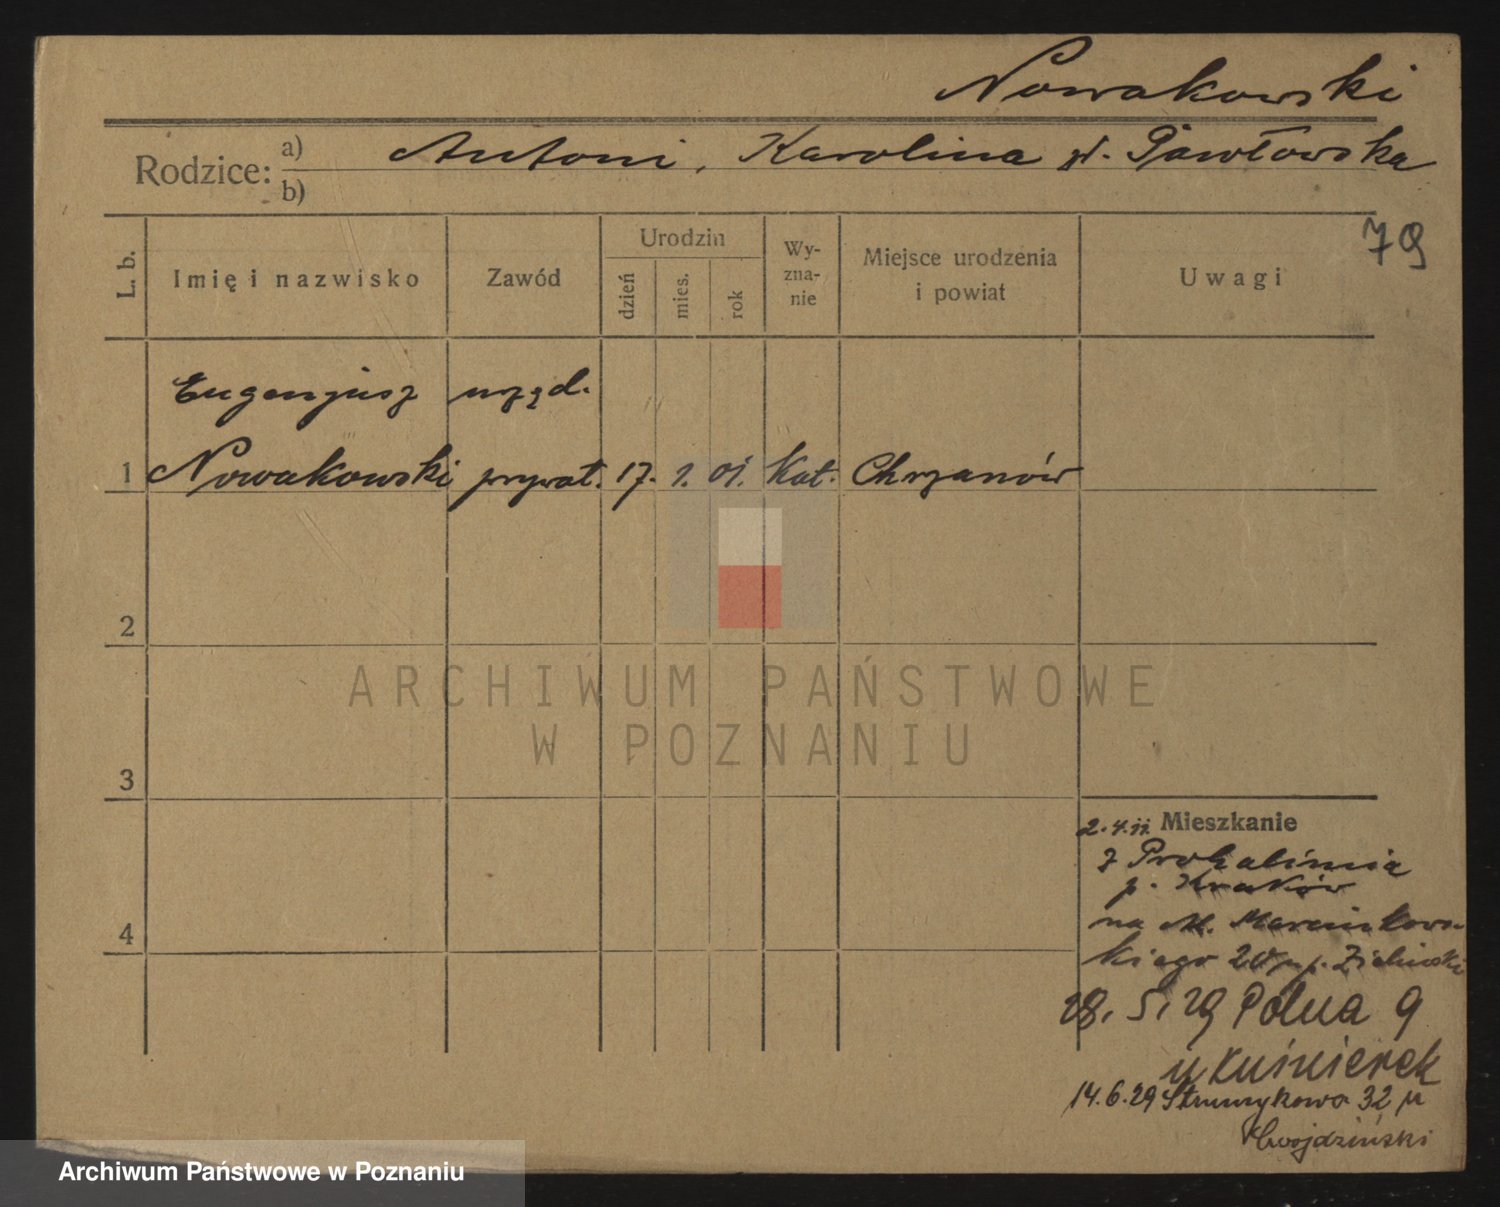 Nowakowski
Rodzice: a) Antoni, Karolina Pawłowska
b)
79
L. b. Imię i nazwisko Zawód Urodzin dzień mies. rok Wy-zna-nie Miejsce urodzenia i powiat Uwagi
Eugenjusz urzęd.
1 Nowakowski prywat. 17. 1. 01. Kat. Chrzanów
2
ARCHIWUM PAŃSTWOWE
W POZNANIU
3
Mieszkanie
z Prokocimia
p. Kraków
na M. Marcinkows-
kiego 20 Zieliński
4
28. 5. 29 Polna 9
u Kuśnierek
14.6.29 Strumykowa 32 u
Gwojdziński
Archiwum Państwowe w Poznaniu